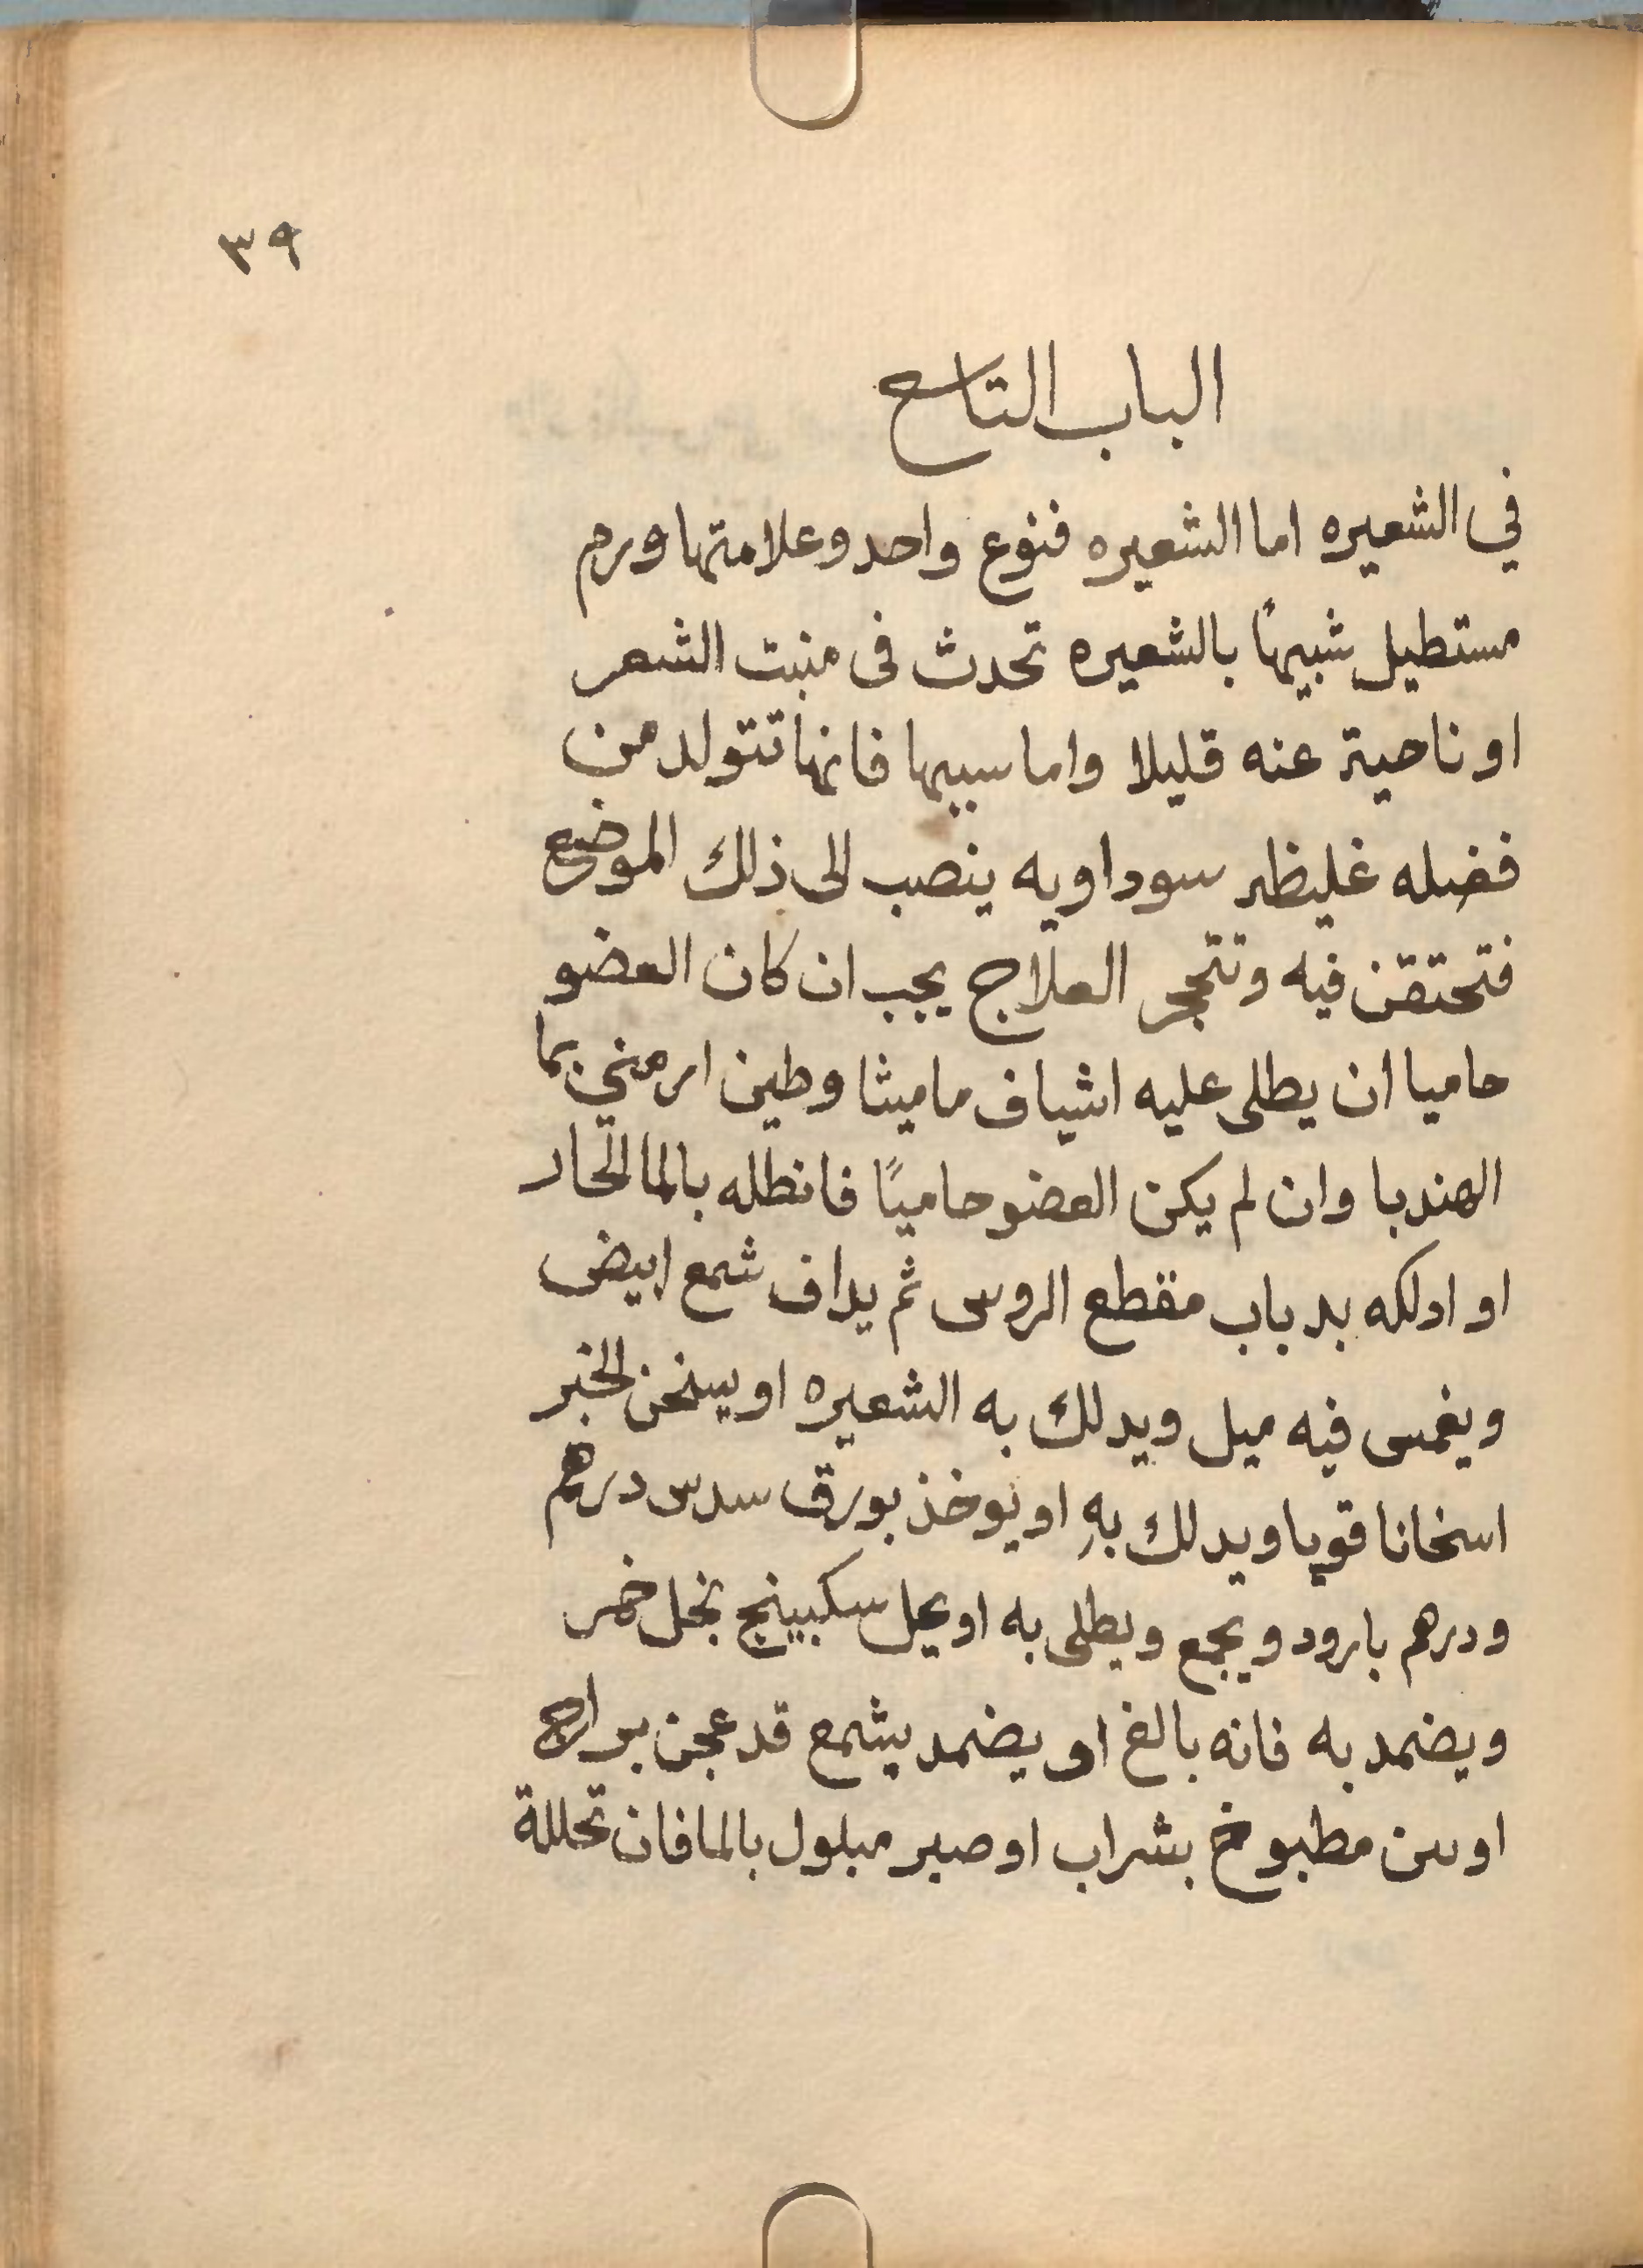 ٣٩
الباب التاسع
في الشعيره اما الشعيره فنوع واحد وعلامتها ورم
مستطيل شبيهًا بالشعيره تحدث فى منبت الشعر
او ناحية عنه قليلا واما سببها فانها تتولد من
فضله غليظه سوداويه ينصب الى ذلك الموضع
فتحتقن فيه وتتحجر العلاج يجب ان كان العضو
حاميا ان يطلى عليه اشياف ماميثا وطين ارمني بما
الهندبا وان لم يكن العضو حاميًا فانطله بالما الحار
او ادلكه بدباب مقطع الروس ثم يداف شمع ابيض
ويغمس فيه ميل ويدلك به الشعيره او يسخن الخبز
اسخانا قويا ويدلك بهِ او يوخذ بورق سدس درهم
ودرهم بارود ويجمع ويطلى به او يحل سكبينج بخل خمر
ويضمد به فانه بالغ او يضمد بشمع قد عجن
او مطبوخ بشراب او صبر مبلول بالما فان تحللة